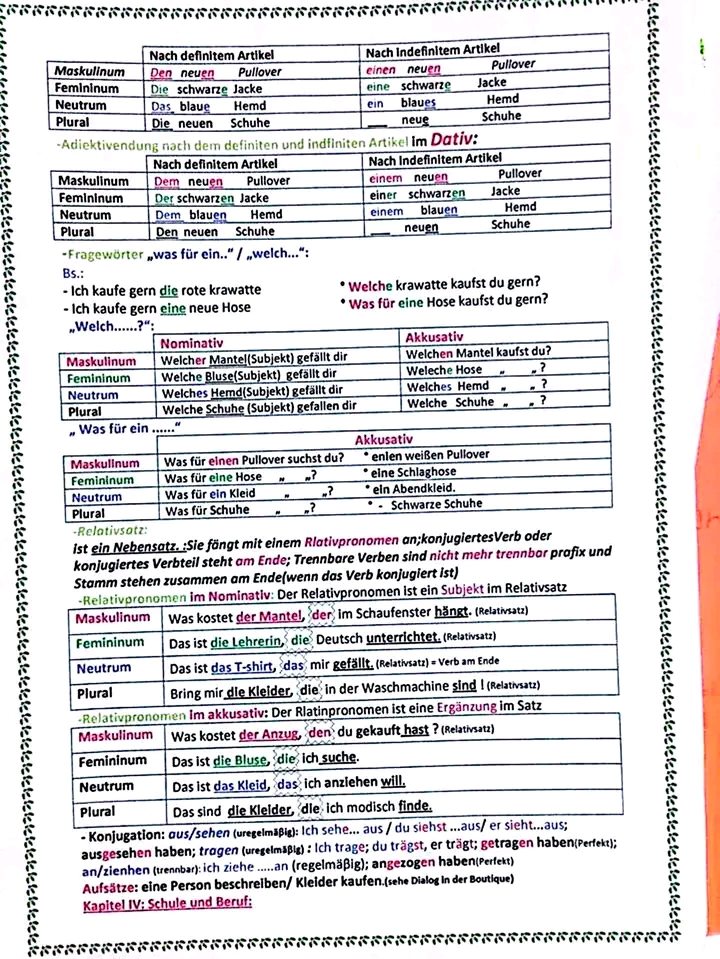 Nach definitem Artikel Nach Indefinitem Artikel
Maskulinum Den neuen Pullover einen neuen Pullover
Femininum Die schwarze Jacke eine schwarze Jacke
Neutrum Das blaue Hemd ein blaues Hemd
Plural Die neuen Schuhe ___ neue Schuhe
-Adiektivendung nach dem definiten und indfiniten Artikel im Dativ:
Nach definitem Artikel Nach Indefinitem Artikel
Maskulinum Dem neuen Pullover einem neuen Pullover
Femininum Der schwarzen Jacke einer schwarzen Jacke
Neutrum Dem blauen Hemd einem blauen Hemd
Plural Den neuen Schuhe ___ neuen Schuhe
-Fragewörter „was für ein..“ / „welch...“:
Bs.:
- Ich kaufe gern die rote krawatte * Welche krawatte kaufst du gern?
- Ich kaufe gern eine neue Hose * Was für eine Hose kaufst du gern?
„Welch......?“:
Nominativ Akkusativ
Maskulinum Welcher Mantel(Subjekt) gefällt dir Welchen Mantel kaufst du?
Femininum Welche Bluse(Subjekt) gefällt dir Weleche Hose „ „ ?
Neutrum Welches Hemd(Subjekt) gefällt dir Welches Hemd „ „ ?
Plural Welche Schuhe (Subjekt) gefallen dir Welche Schuhe „ „ ?
„ Was für ein ......“
Akkusativ
Maskulinum Was für einen Pullover suchst du? * enlen weißen Pullover
Femininum Was für eine Hose „ „? * eine Schlaghose
Neutrum Was für ein Kleid „ „? * ein Abendkleid.
Plural Was für Schuhe „ „? * - Schwarze Schuhe
-Relativsatz:
ist ein Nebensatz. :Sie fängt mit einem Rlativpronomen an;konjugiertesVerb oder
konjugiertes Verbteil steht am Ende; Trennbare Verben sind nicht mehr trennbar prafix und
Stamm stehen zusammen am Ende(wenn das Verb konjugiert ist)
-Relativpronomen im Nominativ: Der Relativpronomen ist ein Subjekt im Relativsatz
Maskulinum Was kostet der Mantel, der im Schaufenster hängt. (Relativsatz)
Femininum Das ist die Lehrerin, die Deutsch unterrichtet. (Relativsatz)
Neutrum Das ist das T-shirt, das mir gefällt. (Relativsatz) = Verb am Ende
Plural Bring mir die Kleider, die in der Waschmachine sind ! (Relativsatz)
-Relativpronomen im akkusativ: Der Rlatinpronomen ist eine Ergänzung im Satz
Maskulinum Was kostet der Anzug, den du gekauft hast ? (Relativsatz)
Femininum Das ist die Bluse, die ich suche.
Neutrum Das ist das Kleid, das ich anziehen will.
Plural Das sind die Kleider, die ich modisch finde.
- Konjugation: aus/sehen (uregelmäßig): Ich sehe... aus / du siehst ...aus/ er sieht...aus;
ausgesehen haben; tragen (uregelmäßig) : Ich trage; du trägst, er trägt; getragen haben(Perfekt);
an/zienhen (trennbar): ich ziehe .....an (regelmäßig); angezogen haben(Perfekt)
Aufsätze: eine Person beschreiben/ Kleider kaufen.(sehe Dialog in der Boutique)
Kapitel IV: Schule und Beruf: